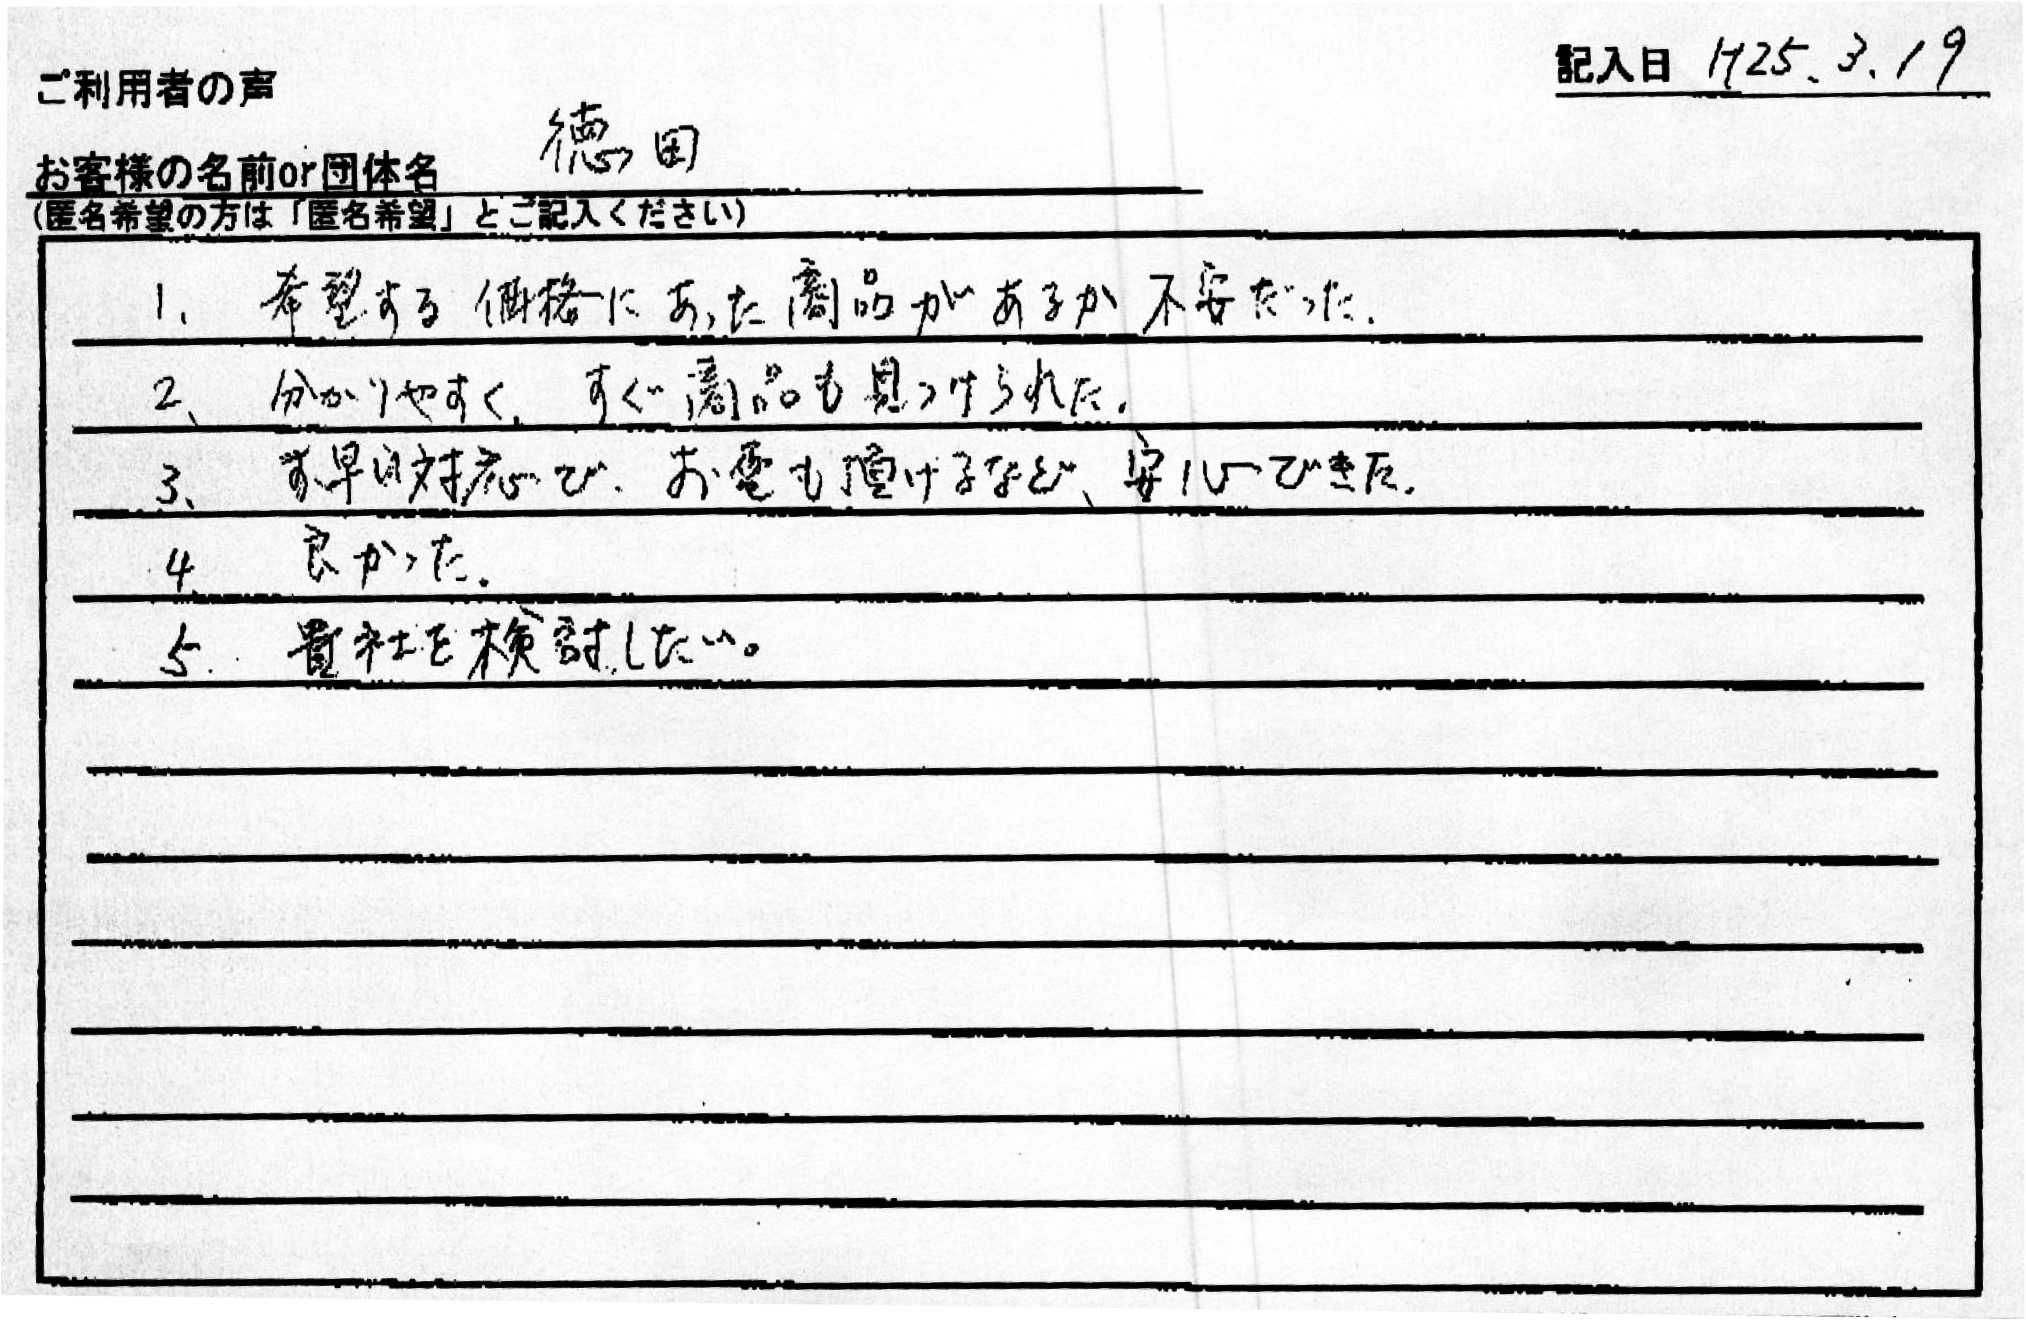 記入日 H25.3.19
ご利用者の声
お客様の名前or団体名 徳田
(匿名希望の方は「匿名希望」とご記入ください)
1、希望する価格にあった商品があるか不安だった.
2、分かりやすく、すぐ商品も見つけられた.
3、す早い対応で、お電も頂けるなど、安心できた.
4 良かった.
5. 貴社を検討したい。